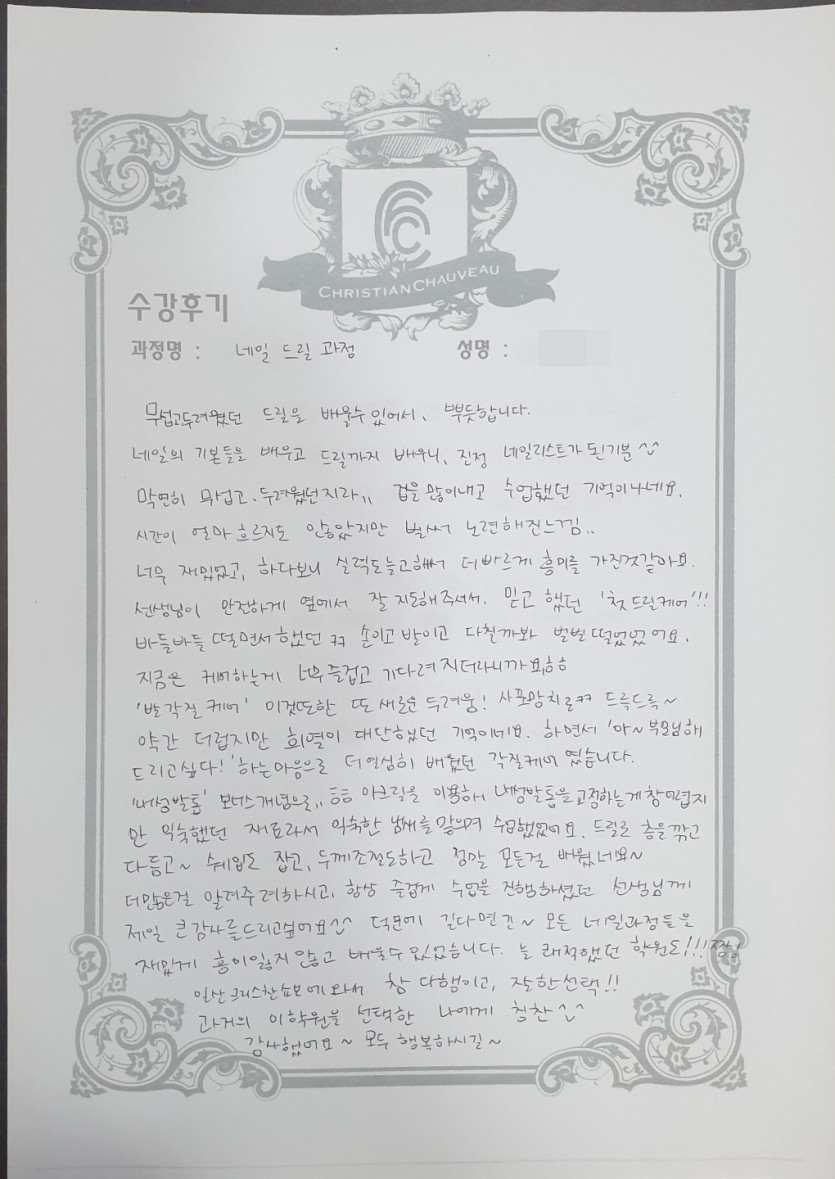 CHRISTIAN CHAUVEAU
수강후기
과정명 : 네일 드릴 과정 성명 :
무섭고두려웠던 드릴을 배울수 있어서, 뿌듯합니다.
네일의 기본들을 배우고 드릴까지 배우니, 진정 네일리스트가 된기분^^
막연히 무섭고. 두려웠던지라,, 겁을 많이내고 수업했던 기억이나네요.
시간이 얼마 흐르지도 않았지만 벌써 노련해진느낌..
너무 재밌었고, 하다보니 실력도늘고해서 더빠르게 흥미를 가진것같아요.
선생님이 안전하게 옆에서 잘 지도해주셔서, 믿고 했던 '첫 드릴케어'!!
바들바들 떨면서했던 ㅋㅋ 손이고 발이고 다칠까봐 벌벌떨었었어요.
지금은 케어하는게 너무즐겁고 기다려지더라니까요ㅎㅎ
'발각질 케어' 이것또한 또새로운 두려움! 사포망치로ㅋㅋ 드륵드륵~
약간 더럽지만 희열이 대단했던 기억이네요. 하면서 '아~ 부모님해
드리고싶다!' 하는마음으로 더열심히 배웠던 각질케어 였습니다.
'내성발톱' 보너스개념으로,, 아크릴을 이용해서 내성발톱을교정하는게
안 익숙했던 재료라서 익숙한 냄새를 맡으며 수업했었어요. 드릴로 층을깎고
다듬고~ 쉐입도 잡고, 두께조절도하고 정말 모든걸 배웠네요~
더많은걸 알려주려하시고, 항상 즐겁게 수업을 진행하셨던 선생님께
제일 큰감사를드리고싶어요^^ 덕분에 길다면긴~ 모든 네일과정들을
재밌게 흥미잃지않고 배울수있었습니다. 늘 쾌적했던 학원도!!! 짱
일산 크리스챤쇼보에 와서 참 다행이고, 잘한선택!!
과거의 이학원을 선택한 나에게 칭찬^^
감사했어요~ 모두 행복하시길~